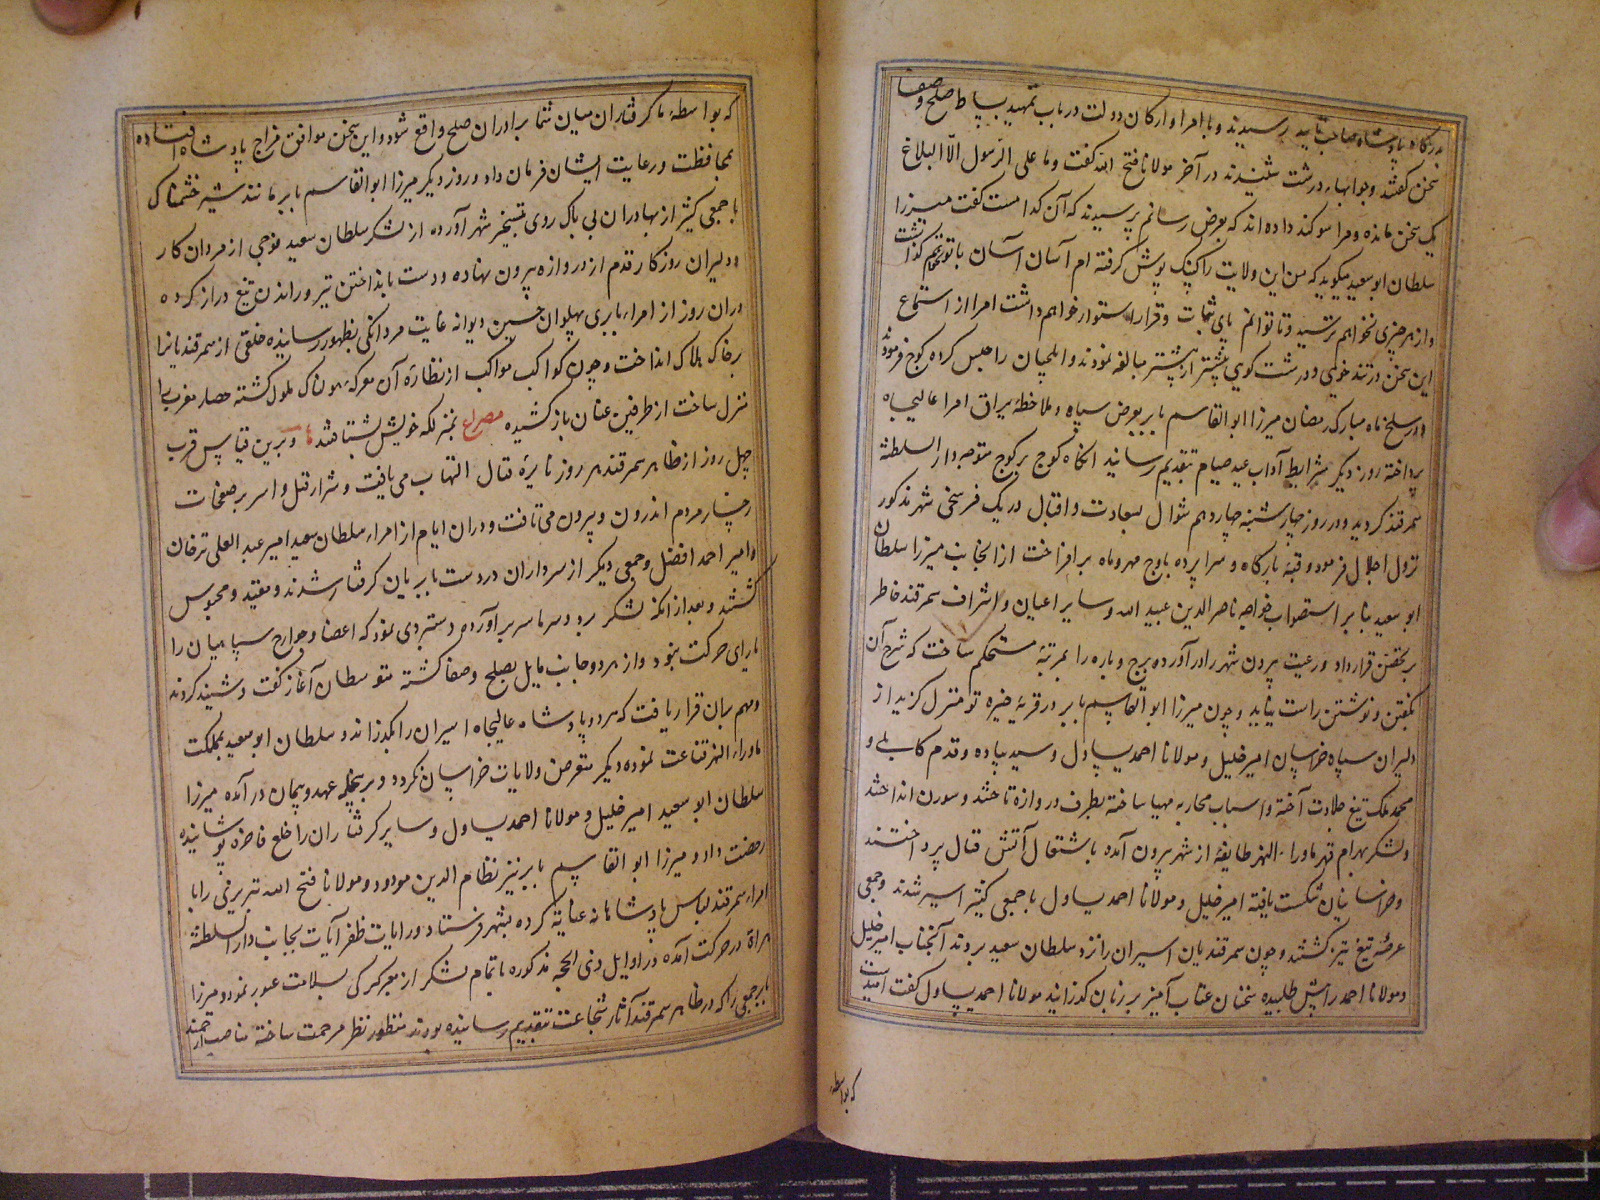 بدرگاه پادشاه صاحب تایید رسیدند و با امرا و ارکان دولت در باب تمهید بساط صلح و صفا
سخن گفتند و جوابهاء درشت شنیدند در آخر مولانا فتح الله گفت و ما علی الرسول الا البلاغ
یک سخن مانده و مرا سوکند داده اند که بعرض رسانم پرسیدند که آن کدامست گفت میرزا
سلطان ابو سعید میکوید که من این ولایت را کپنک پوش گرفته ام آسان آسان باتو نخواهم گذاشت
و از هر چیزی نخواهم ترسید و تا توانم پای ثبات و قرار استوار خواهم داشت امرا از استماع
این سخن در تند خویی و درشت کویی بیشتر از پیشتر مبالغه نمودند و ایلچیان را حبس کرده کوچ فرمودند
و در سلخ ماه مبارک رمضان میرزا ابو القاسم بابر بعرض سپاه و ملاحظهٔ یراق امرا عالیجاه
پرداخته روز دیکر شرایط آداب عید صیام بتقدیم رسانید آنکاه کوچ بر کوچ متوجه دار السلطنة
سمرقند کردید و در روز چهارشنبه چهاردهم شوال بسعادت و اقبال در یک فرسخی شهر مذکور
نزول اجلال فرمود و قبهٔ بارکاه و سراپرده باوج مهر و ماه برافراخت از انجانب میرزا سلطان
ابو سعید بنا بر استصواب خواجه ناصر الدین عبید الله و سایر اعیان و اشراف سمرقند خاطر
بر تحصن قرار داد و رعیت بیرون شهر را در آورده برج و باره را بمرتبهٔ مستحکم ساخت که شرح آن
بکفتن و نوشتن راست نیاید و چون میرزا ابو القاسم بابر در قریهٔ خیره تو منزل کزید از
دلیران سپاه خراسان امیر خلیل و مولانا احمد یساول و سید پیاده و قدم کابلی و
محمد ملک تیغ جلادت آخته و اسباب محاربه مهیا ساخته بطرف دروازه تاختند و سورن انداختند
و لشکر بهرام قهر ماوراء النهر طایفهٔ از شهر بیرون آمده باشتعال آتش قتال پرداختند
و خراسانیان شکست یافته امیر خلیل و مولانا احمد یساول با جمعی کثیر اسیر شدند و جمعی
عرضهٔ تیغ تیز کشتند و چون سمرقندیان اسیران را نزد سلطان سعید بردند آنجناب امیر خلیل
و مولانا احمد را پیش طلبیده سخنان عتاب آمیز بر زبان کذرانید مولانا احمد یساول کفت امیدست
که بواسطه
که بواسطهٔ ما کرفتاران میان شما برادران صلح واقع شود و این سخن موافق مزاج پادشاه افتاده
بمحافظت و رعایت ایشان فرمان داد و روز دیکر میرزا ابو القاسم بابر مانند شیر خشمناک
با جمعی کثیر از بهادران بی باک روی بتسخیر شهر آورده از لشکر سلطان سعید فوجی از مردان کار
و دلیران روزکار قدم از دروازه بیرون نهاده و دست بانداختن تیر و راندن تیغ دراز کرده
دران روز از امراء بابری پهلوان حسین دیوانه غایت مردانکی بظهور رسانیده خلقی از سمرقندیانرا
بر خاک هلاک انداخت و چون کواکب مواکب از نظارهٔ آن معرکهٔ هولناک ملول کشته حصار مغرب را
منزل ساخت از طرفین عنان باز کشیده مصراع بمنزلکه خویش بشتافتند و برین قیاس قرب
چهل روز از ظاهر سمرقند هر روز نایرهٔ قتال التهاب می یافت و شرار قتل و اسر بر صفحات
رخسار مردم اندرون و بیرون می تافت و دران ایام از امراء سلطان سعید امیر عبد العلی ترخان
و امیر احمد افضل و جمعی دیکر از سرداران در دست بابریان کرفتار شدند و مقید و محبوس
کشتند و بعد از انکه لشکر برد و سرما سر بر آورده دستبردی نمود که اعضا و جوارح سپاهیان را
یارای حرکت نبود و از هر دو جانب مایل بصلح و صفا کشته متوسطان آغاز کفت و شنید کردند
و مهم بران قرار یافت که هر دو پادشاه عالیجاه اسیران را بکذرانند و سلطان ابو سعید بمملکت
ماوراء النهر قناعت نموده دیکر متعرض ولایات خراسان نکردد و برینجمله عهد و پیمان در آمده میرزا
سلطان ابو سعید امیر خلیل و مولانا احمد یساول و سایر کرفتاران را خلع فاخره پوشانیده
رخصت داد و میرزا ابو القاسم بابر نیز نظام الدین مودود و مولانا فتح الله تبریزی را با
امراء سمرقند لباس پادشاهانه عنایة کرده بشهر فرستاد و رایات ظفر آیات بجانب دار السلطنة
هراة در حرکت آمده در اوایل ذی الحجه مذکوره با تمام لشکر از معبر کرکی بسلامت عبور نمود و میرزا
بابر جمعی را که در ظاهر سمرقند آثار شجاعت بتقدیم رسانیده بودند منظور نظر مرحمت ساخته مناصب ارجمند